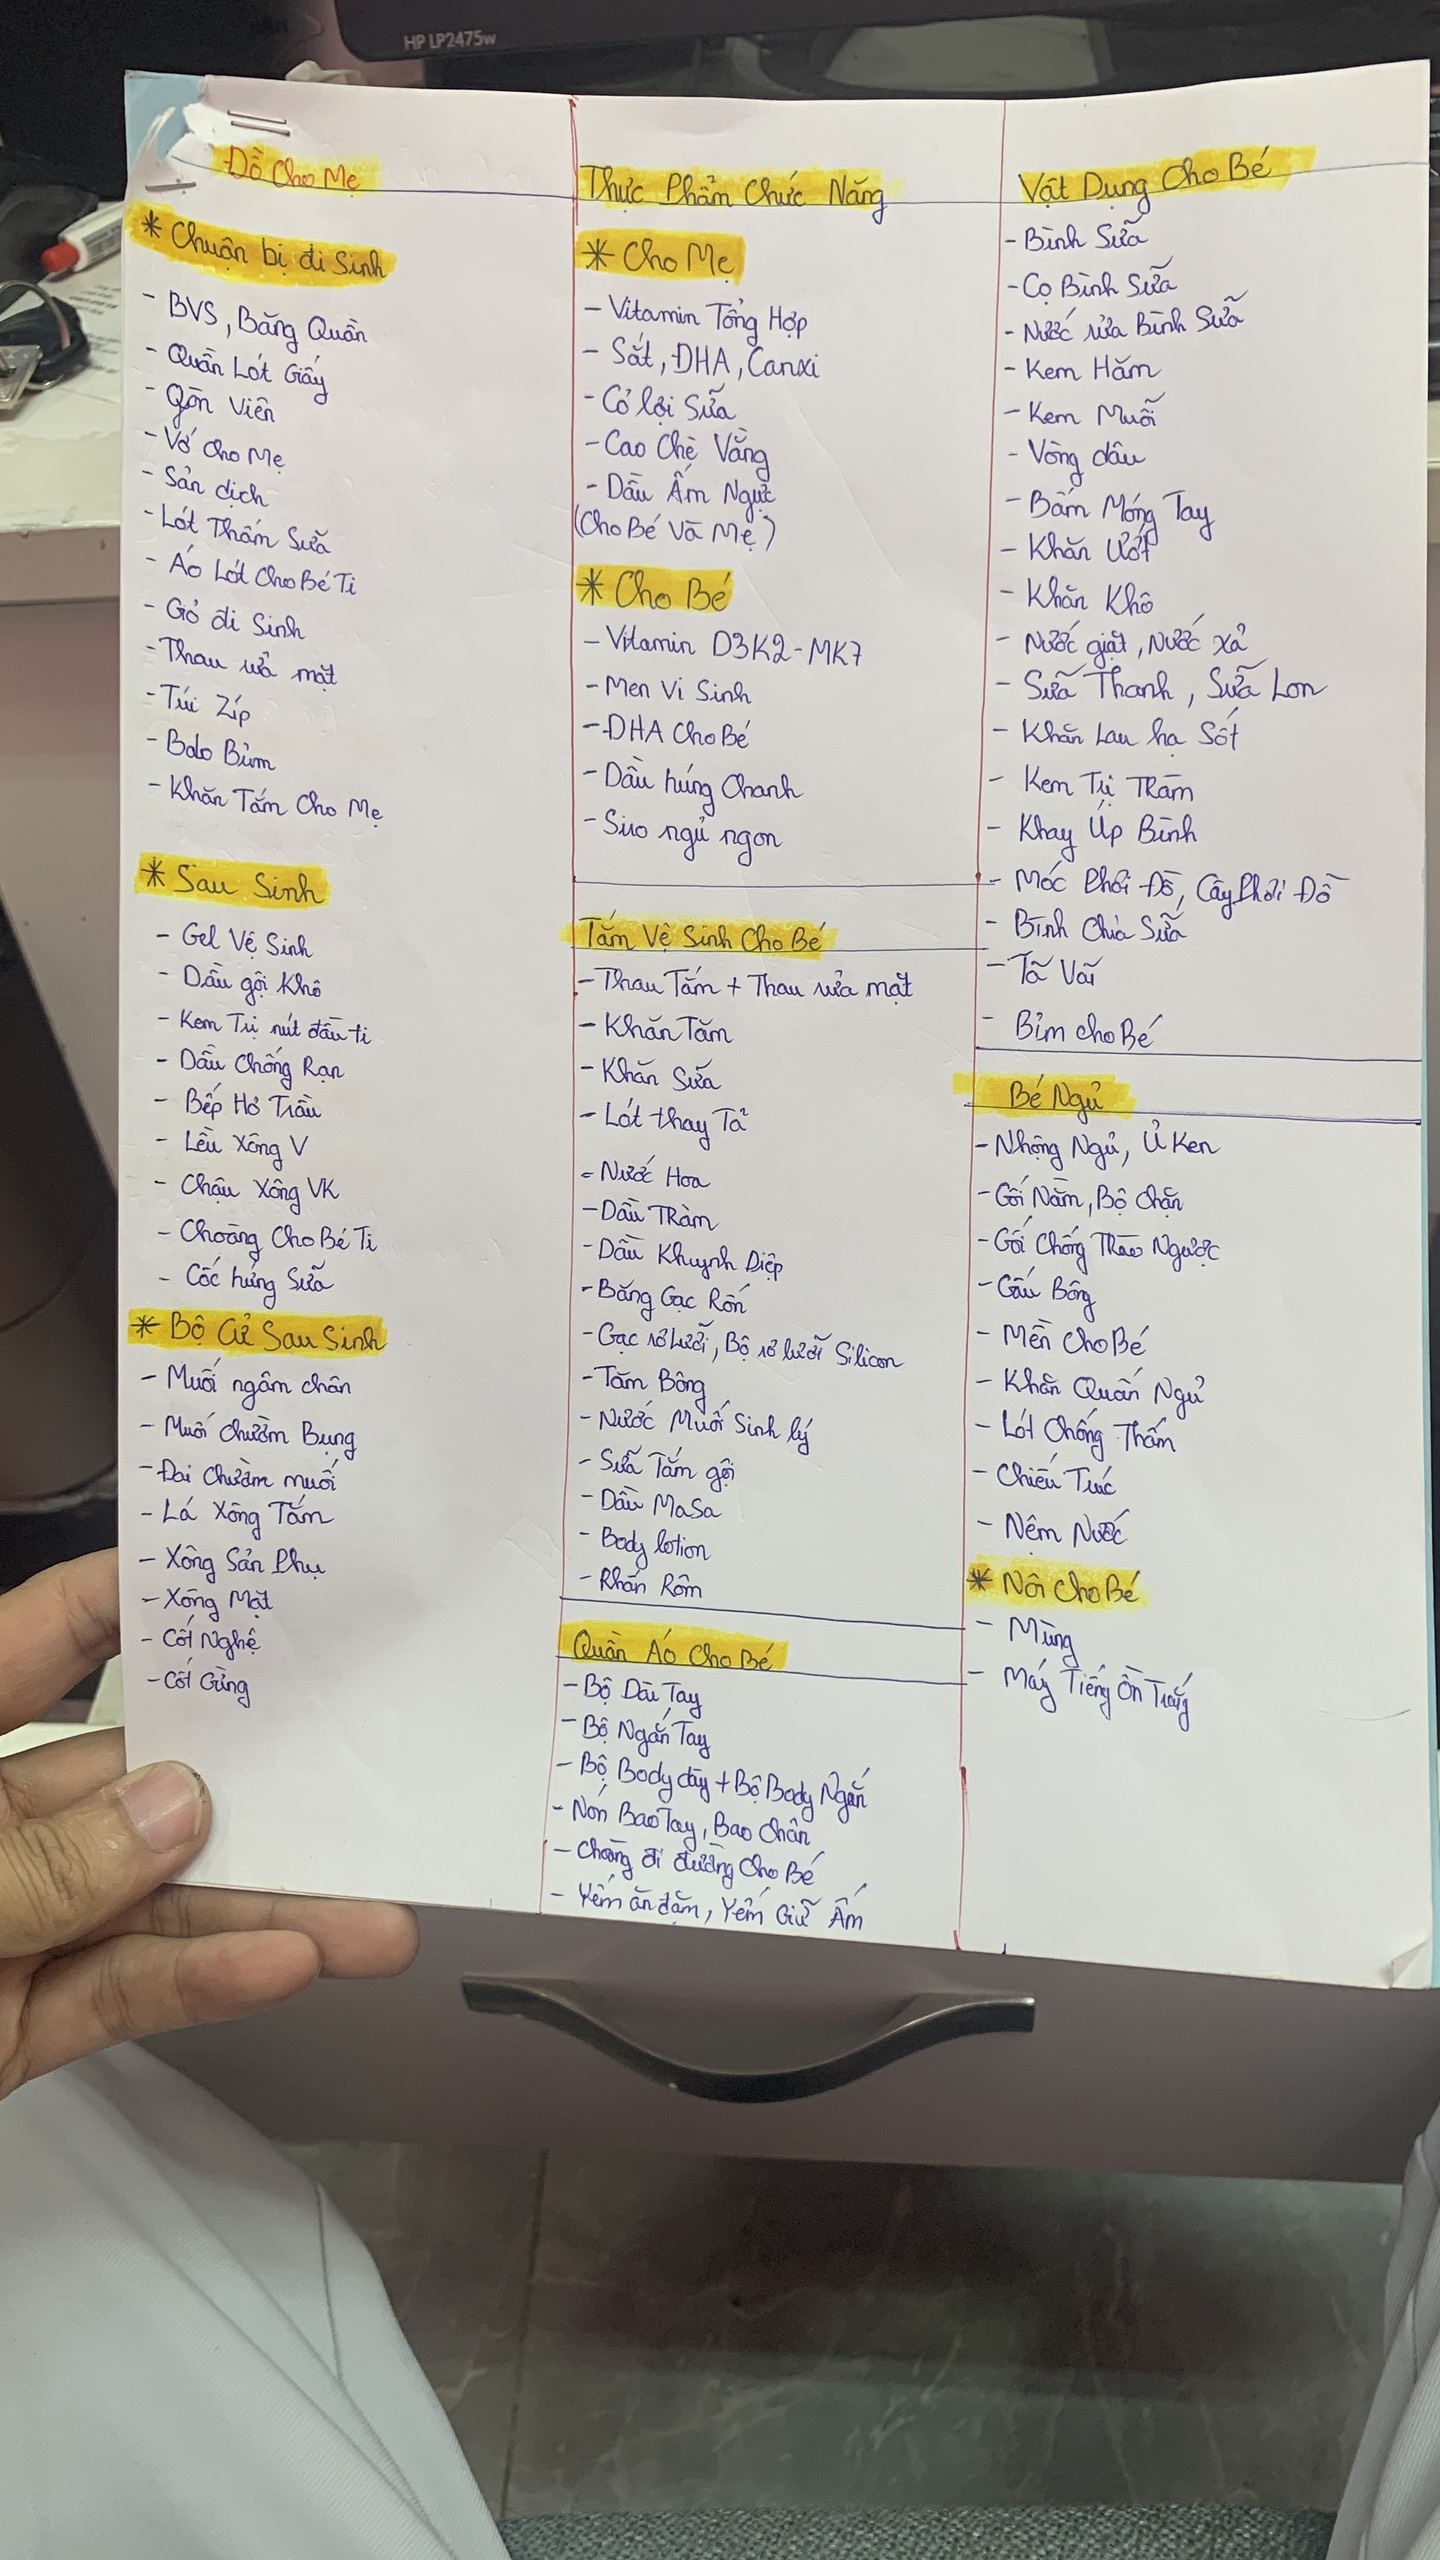 HP LP2475w
Đồ Cho Mẹ
* Chuẩn bị đi Sinh
- BVS, Băng Quần
- Quần Lót Giấy
- Gòn Viên
- Vớ Cho Mẹ
- Sản dịch
- Lót Thấm Sữa
- Áo Lót Cho Bé Ti
- Giỏ đi Sinh
- Thau rửa mặt
- Túi Zíp
- Balo Bỉm
- Khăn Tắm Cho Mẹ
* Sau Sinh
- Gel Vệ Sinh
- Dầu gội Khô
- Kem Trị nứt đầu ti
- Dầu Chống Rạn
- Bếp Hơ Trầu
- Lều Xông V
- Chậu Xông VK
- Choàng Cho Bé Ti
- Cốc hứng Sữa
* Bộ Cử Sau Sinh
- Muối ngâm chân
- Muối Chườm Bụng
- Đai Chườm muối
- Lá Xông Tắm
- Xông Sản Phụ
- Xông Mặt
- Cốt Nghệ
- Cốt Gừng
Thực Phẩm Chức Năng
* Cho Mẹ
- Vitamin Tổng Hợp
- Sắt, ĐHA, Canxi
- Cỏ lợi Sữa
- Cao Chè Vằng
- Dầu Ấm Ngực
(Cho Bé Và Mẹ)
* Cho Bé
- Vitamin D3K2-MK7
- Men Vi Sinh
- ĐHA Cho Bé
- Dầu húng Chanh
- Siro ngủ ngon
Tắm Vệ Sinh Cho Bé
- Thau Tắm + Thau rửa mặt
- Khăn Tắm
- Khăn Sữa
- Lót thay Tả
- Nước Hoa
- Dầu Tràm
- Dầu Khuynh Diệp
- Băng Gạc Rốn
- Gạc rơ Lưỡi, Bộ rơ lưỡi Silicon
- Tăm Bông
- Nước Muối Sinh lý
- Sữa Tắm gội
- Dầu MaSa
- Body lotion
- Phấn Rôm
Quần Áo Cho Bé
- Bộ Dài Tay
- Bộ Ngắn Tay
- Bộ Body dài + Bộ Body Ngắn
- Nón Bao Tay, Bao Chân
- Choàng đi đường Cho Bé
- Yếm ăn dặm, Yếm Giữ Ấm
Vật Dụng Cho Bé
- Bình Sữa
- Cọ Bình Sữa
- Nước rửa Bình Sữa
- Kem Hăm
- Kem Muỗi
- Vòng dâu
- Bấm Móng Tay
- Khăn Ướt
- Khăn Khô
- Nước giặt, Nước Xả
- Sữa Thanh, Sữa Lon
- Khăn Lau hạ Sốt
- Kem Trị Thâm
- Khay Úp Bình
- Móc Phơi Đồ, Cây Phơi Đồ
- Bình Chia Sữa
- Tã Vải
- Bỉm cho Bé
Bé Ngủ
- Nhộng Ngủ, Ủ Kén
- Gối Nằm, Bộ Chặn
- Gối Chống Trào Ngược
- Gấu Bông
- Mền Cho Bé
- Khăn Quấn Ngủ
- Lót Chống Thấm
- Chiếu Trúc
- Nệm Nước
* Nôi Cho Bé
- Mùng
- Máy Tiếng Ồn Trắng